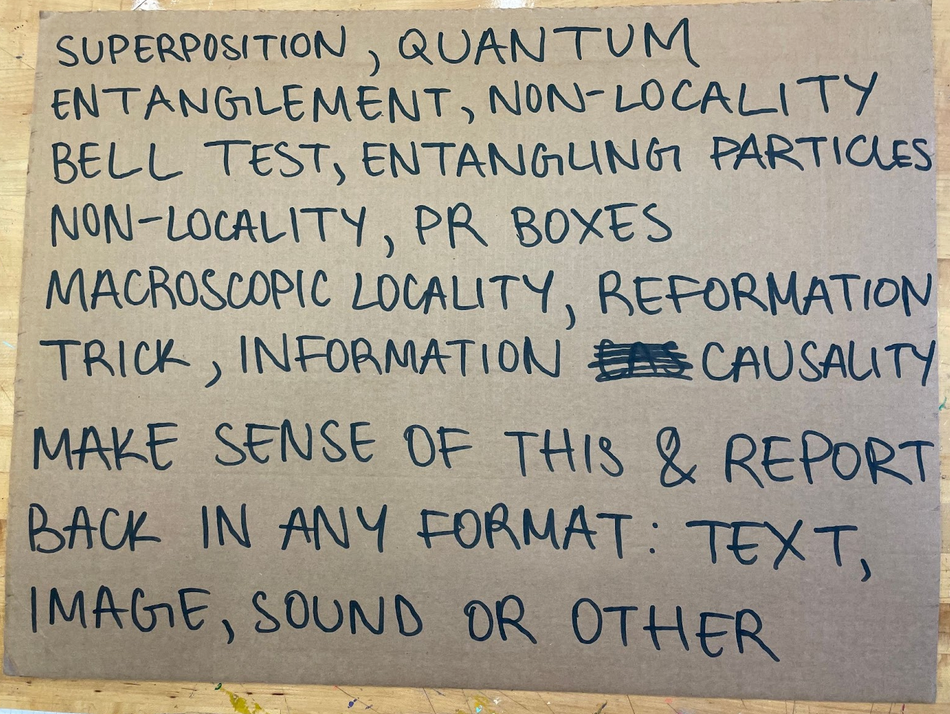 SUPERPOSITION, QUANTUM
ENTANGLEMENT, NON-LOCALITY
BELL TEST, ENTANGLING PARTICLES
NON-LOCALITY, PR BOXES
MACROSCOPIC LOCALITY, REFORMATION
TRICK, INFORMATION CAUSALITY
MAKE SENSE OF THIS & REPORT
BACK IN ANY FORMAT: TEXT,
IMAGE, SOUND OR OTHER